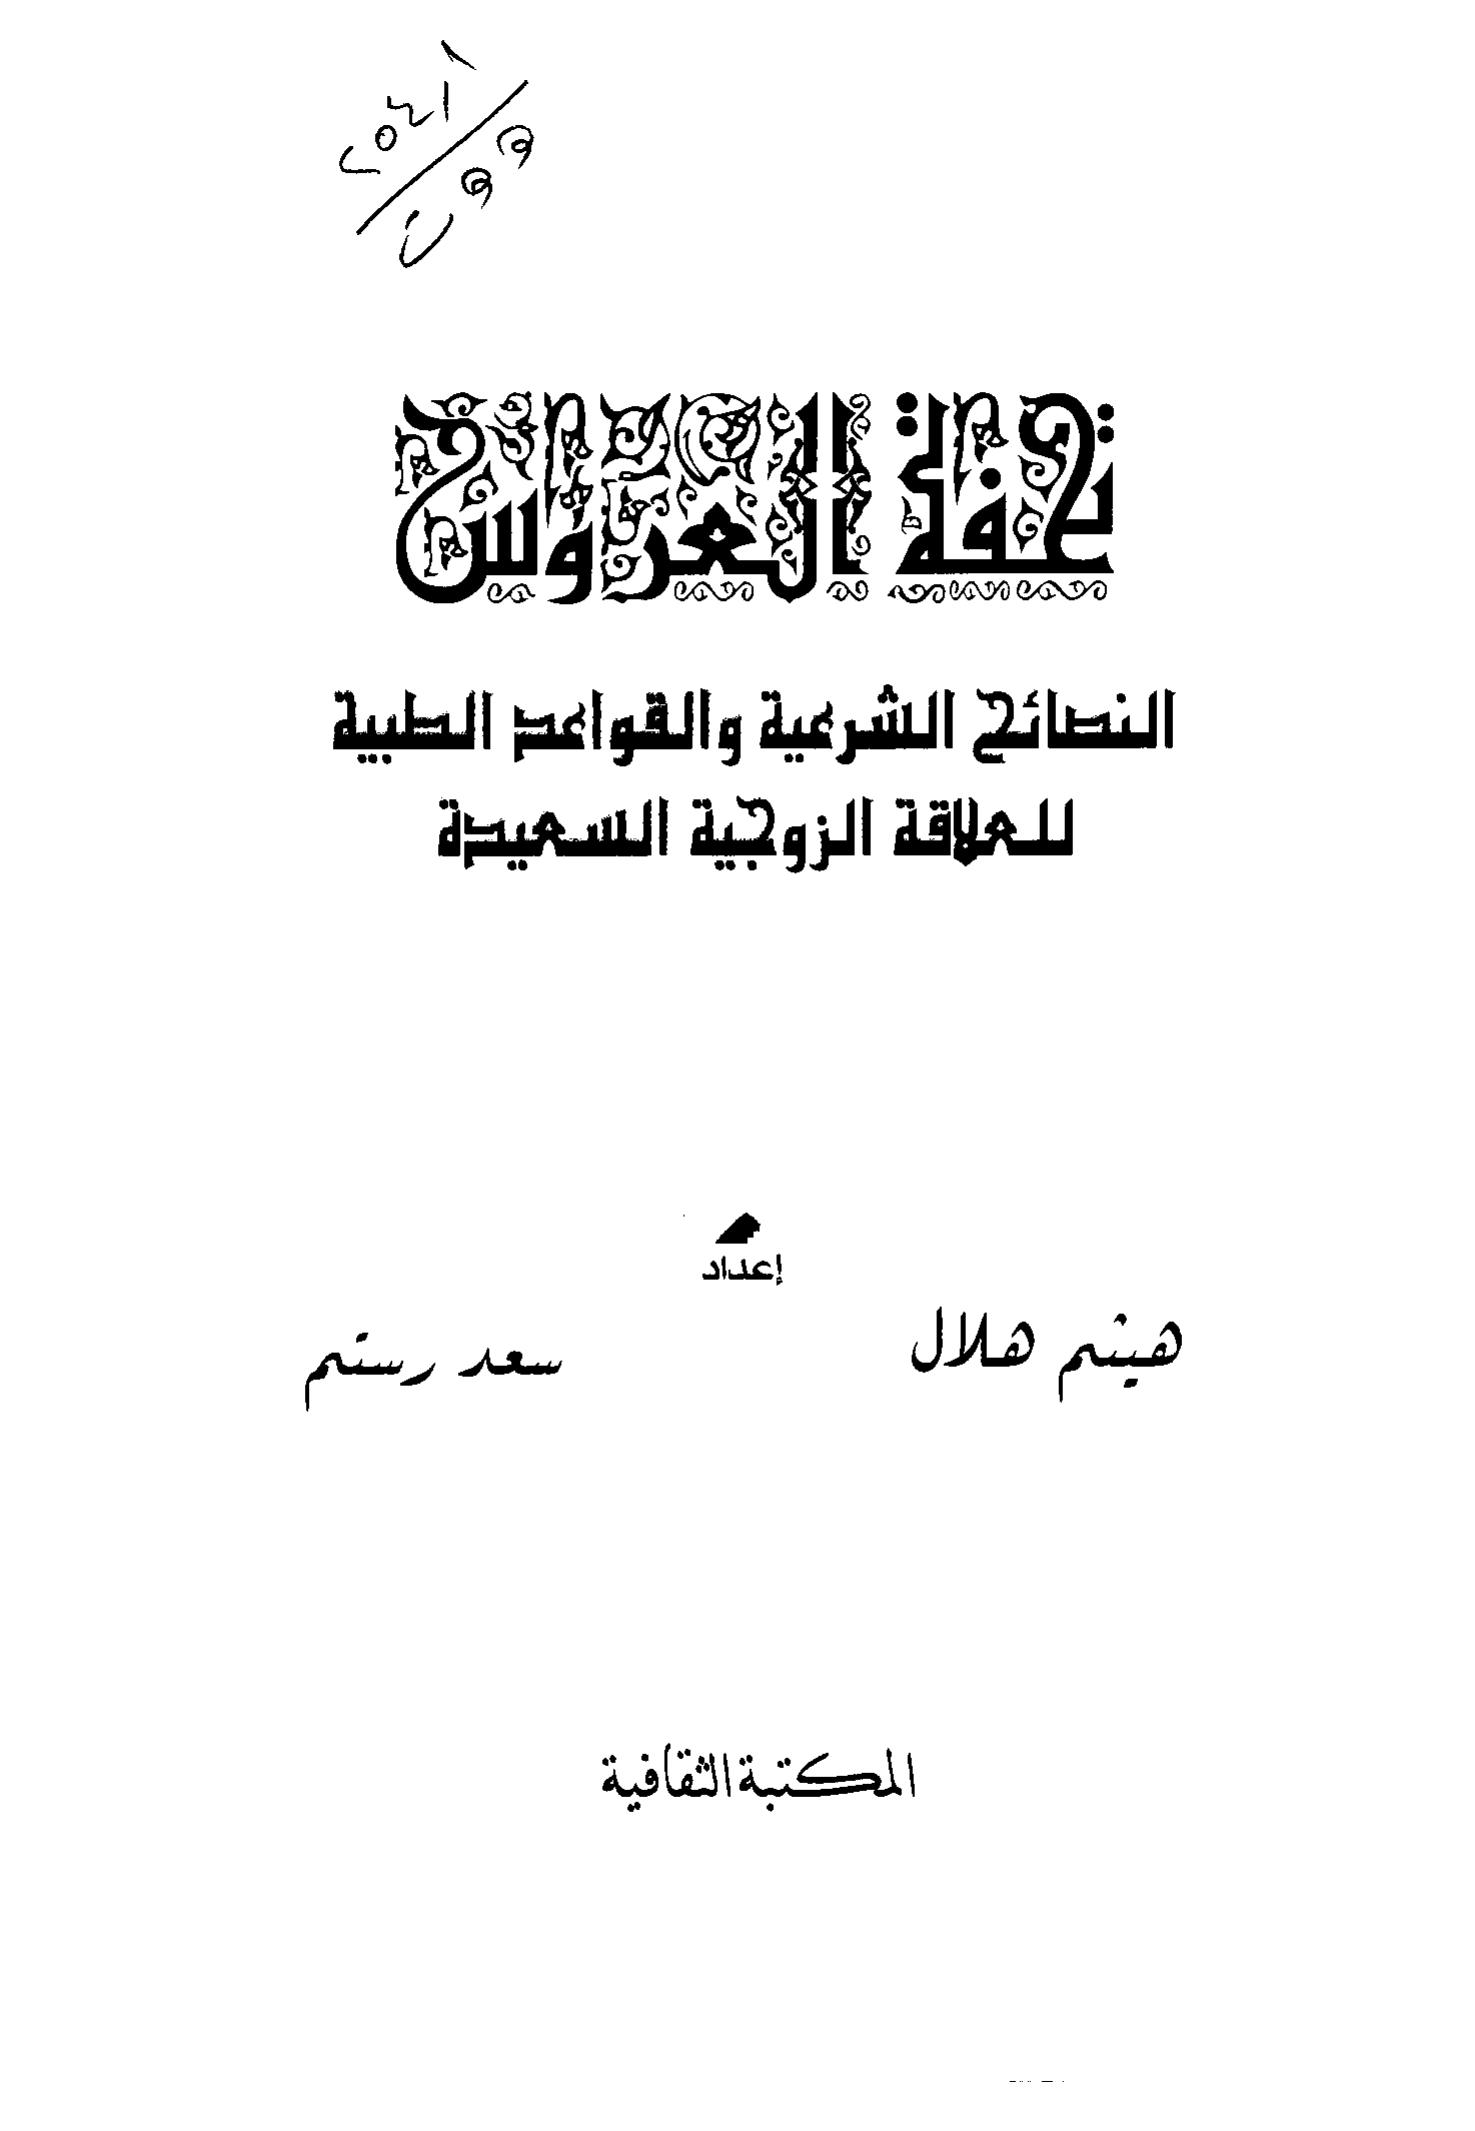 تحفة العروس
النصائح الشرعية والقواعد الطبية
للعلاقة الزوجية السعيدة
إعداد
هيثم هلال سعد رستم
المكتبة الثقافية